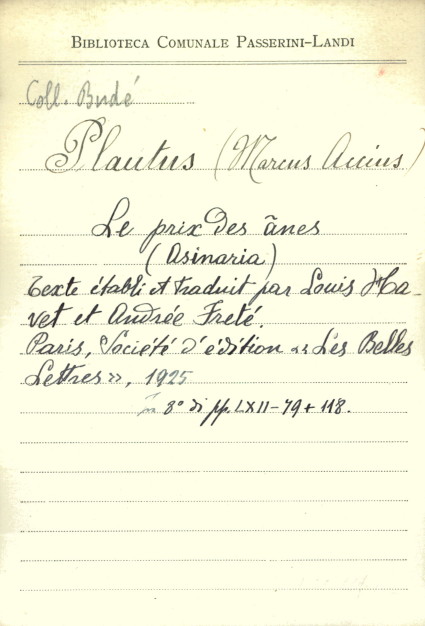 BIBLIOTECA COMUNALE PASSERINI-LANDI
Coll. Budé
Plautus (Marcus Accius)
Le prix des ânes
(Asinaria)
Texte établi et traduit par Louis Ha-
vet et Andrée Freté.
Paris, Société d'édition «Les Belles
Lettres», 1925
In 8° di pp. LXII-79+118.